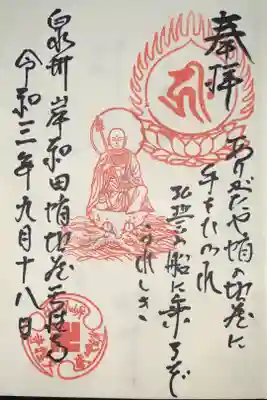 奉拝
ありがたや蛸の地蔵に
手をひかれ
弘誓の船に乗るぞ
うれしき
泉州岸和田蛸地蔵天性寺
令和三年九月十八日